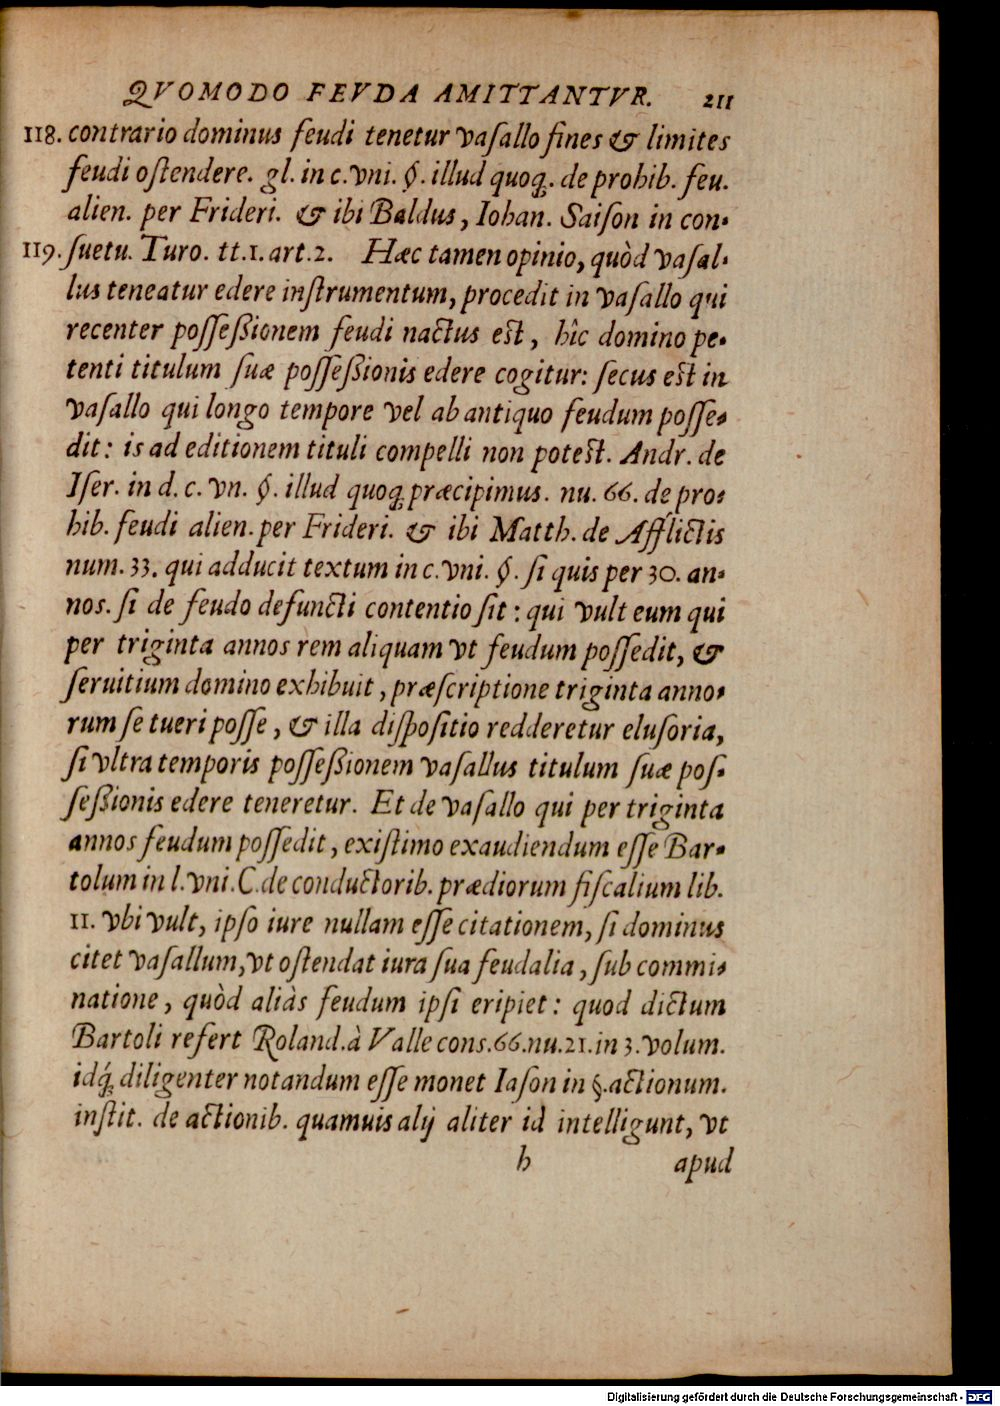 QVOMODO FEVDA AMITTANTVR. 211
118. contrario dominus feudi tenetur vaſallo fines & limites
feudi oſtendere. gl. in c. vni. §. illud quoq́. de prohib. feu.
alien. per Frideri. & ibi Baldus, Iohan. Saiſon in con-
119. ſuetu. Turo. tt. 1. art. 2. Hæc tamen opinio, quòd vaſal-
lus teneatur edere inſtrumentum, procedit in vaſallo qui
recenter poſſeßionem feudi nactus eſt, hîc domino pe-
tenti titulum ſuæ poſſeßionis edere cogitur: ſecus eſt in
vaſallo qui longo tempore vel ab antiquo feudum poſſe-
dit: is ad editionem tituli compelli non poteſt. Andr. de
Iſer. in d. c. vn. §. illud quoq́ præcipimus. nu. 66. de pro-
hib. feudi alien. per Frideri. & ibi Matth. de Afflictis
num. 33. qui adducit textum in c. vni. §. ſi quis per 30. an-
nos. ſi de feudo defuncti contentio ſit: qui vult eum qui
per triginta annos rem aliquam vt feudum poſſedit, &
ſeruitium domino exhibuit, præſcriptione triginta anno-
rum ſe tueri poſſe, & illa diſpoſitio redderetur eluſoria,
ſi vltra temporis poſſeßionem vaſallus titulum ſuæ poſ-
ſeßionis edere teneretur. Et de vaſallo qui per triginta
annos feudum poſſedit, exiſtimo exaudiendum eſſe Bar-
tolum in l. vni. C. de conductorib. prædiorum fiſcalium lib.
11. vbi vult, ipſo iure nullam eſſe citationem, ſi dominus
citet vaſallum, vt oſtendat iura ſua feudalia, ſub commi-
natione, quòd aliàs feudum ipſi eripiet: quod dictum
Bartoli refert Roland. à Valle conſ. 66. nu. 21. in 3. volum.
idq́; diligenter notandum eſſe monet Iaſon in §. actionum.
inſtit. de actionib. quamuis alij aliter id intelligunt, vt
h apud
Digitalisierung gefördert durch die Deutsche Forschungsgemeinschaft - DFG